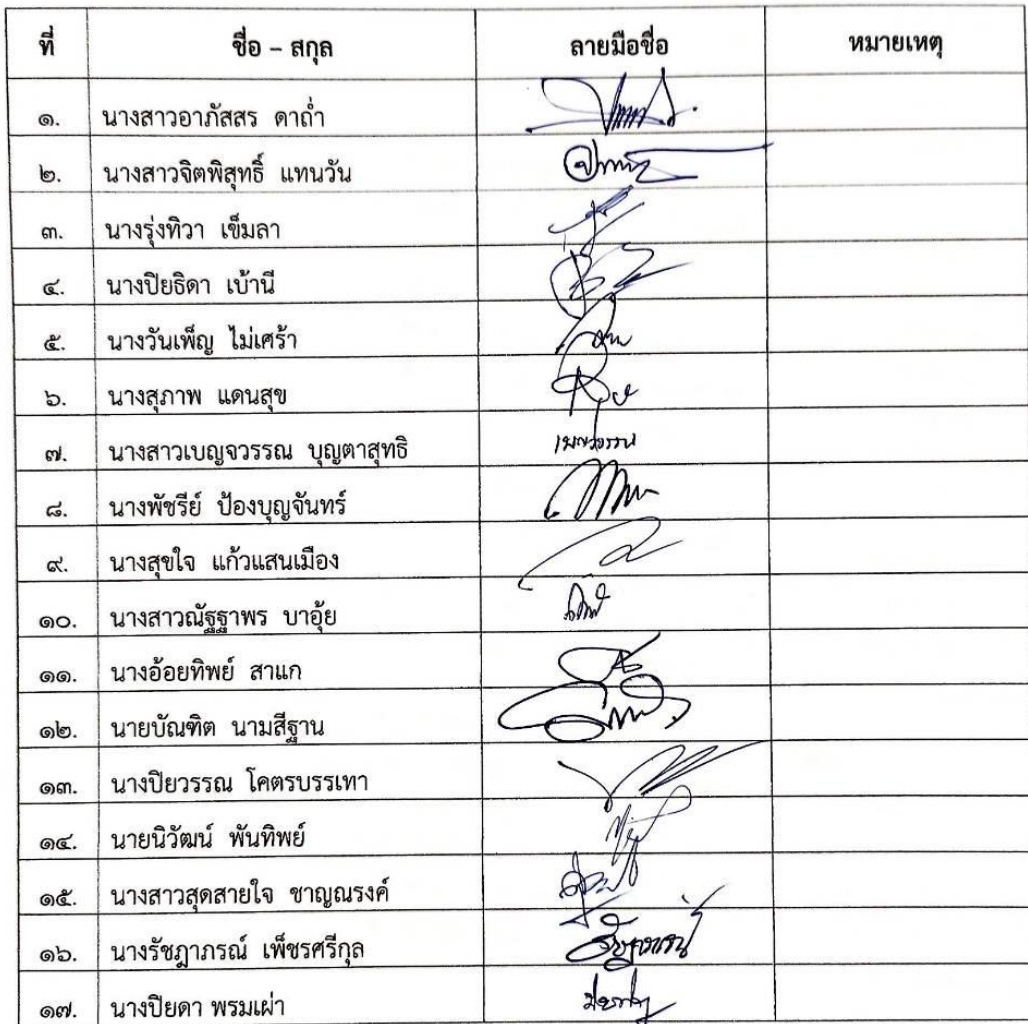 ที่ ชื่อ – สกุล ลายมือชื่อ หมายเหตุ
๑. นางสาวอาภัสสร ดาถ่ำ
๒. นางสาวจิตพิสุทธิ์ แทนวัน
๓. นางรุ่งทิวา เข็มลา
๔. นางปิยธิดา เบ้านี
๕. นางวันเพ็ญ ไม่เศร้า
๖. นางสุภาพ แดนสุข
๗. นางสาวเบญจวรรณ บุญตาสุทธิ เบญจวรรณ
๘. นางพัชรีย์ ป้องบุญจันทร์
๙. นางสุขใจ แก้วแสนเมือง
๑๐. นางสาวณัฐฐาพร บาอุ้ย
๑๑. นางอ้อยทิพย์ สาแก
๑๒. นายบัณฑิต นามสีฐาน
๑๓. นางปิยวรรณ โคตรบรรเทา
๑๔. นายนิวัฒน์ พันทิพย์
๑๕. นางสาวสุดสายใจ ชาญณรงค์
๑๖. นางรัชฎาภรณ์ เพ็ชรศรีกุล
๑๗. นางปิยดา พรมเผ่า